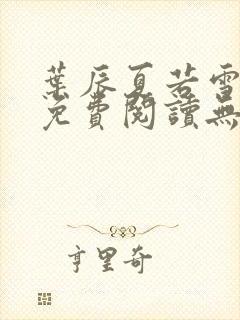 葉辰夏若雪
免費閱讀無
亨里奇